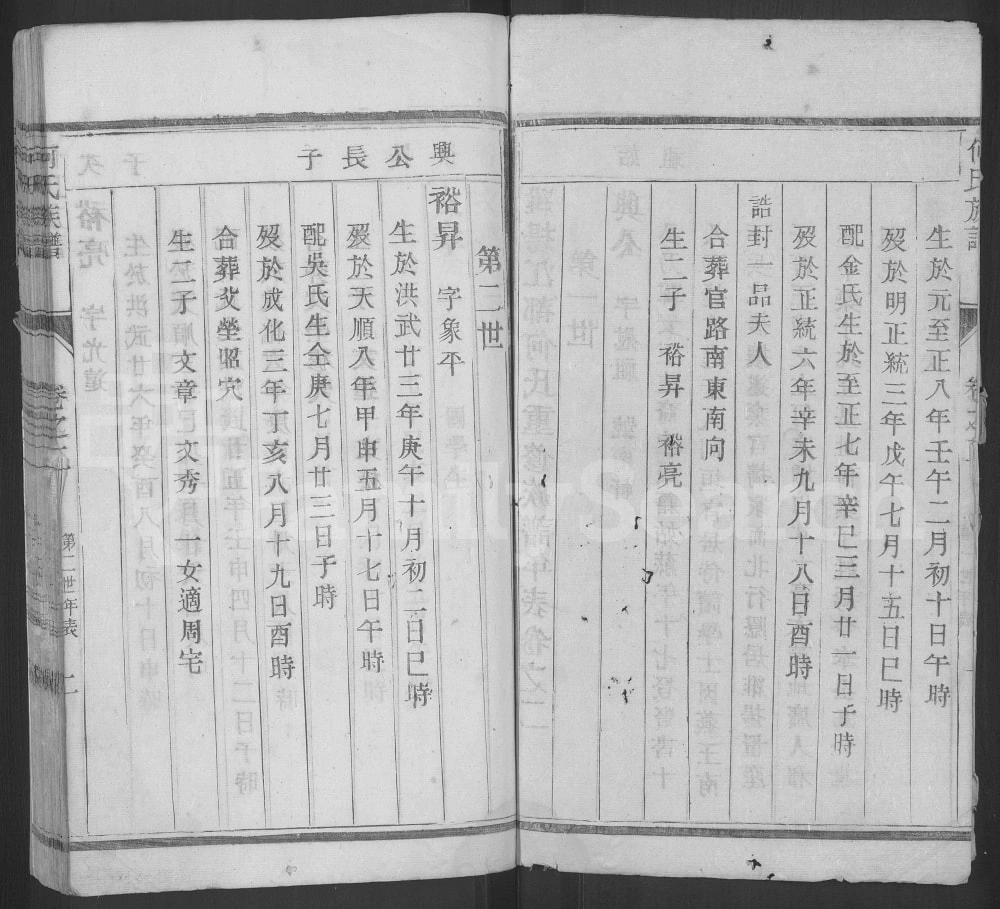 生於元至正八年壬午二月初十日午時
歿於明正統三年戊午七月十五日巳時
配金氏生於至正七年辛巳三月廿一日子時
歿於正統六年辛未九月十八日酉時
誥封一品夫人
合葬官路南東南向
生二子 裕昇 裕亮
第二世
興公長子
裕昇 字象平
生於洪武廿三年庚午十月初二日巳時
歿於天順八年甲申五月十七日午時
配吳氏生仝庚七月廿三日子時
歿於成化三年丁亥八月十九日酉時
合葬父塋昭穴
生二子 文章 文秀 一女適周宅
何氏族譜
卷之二
第二世年表
二